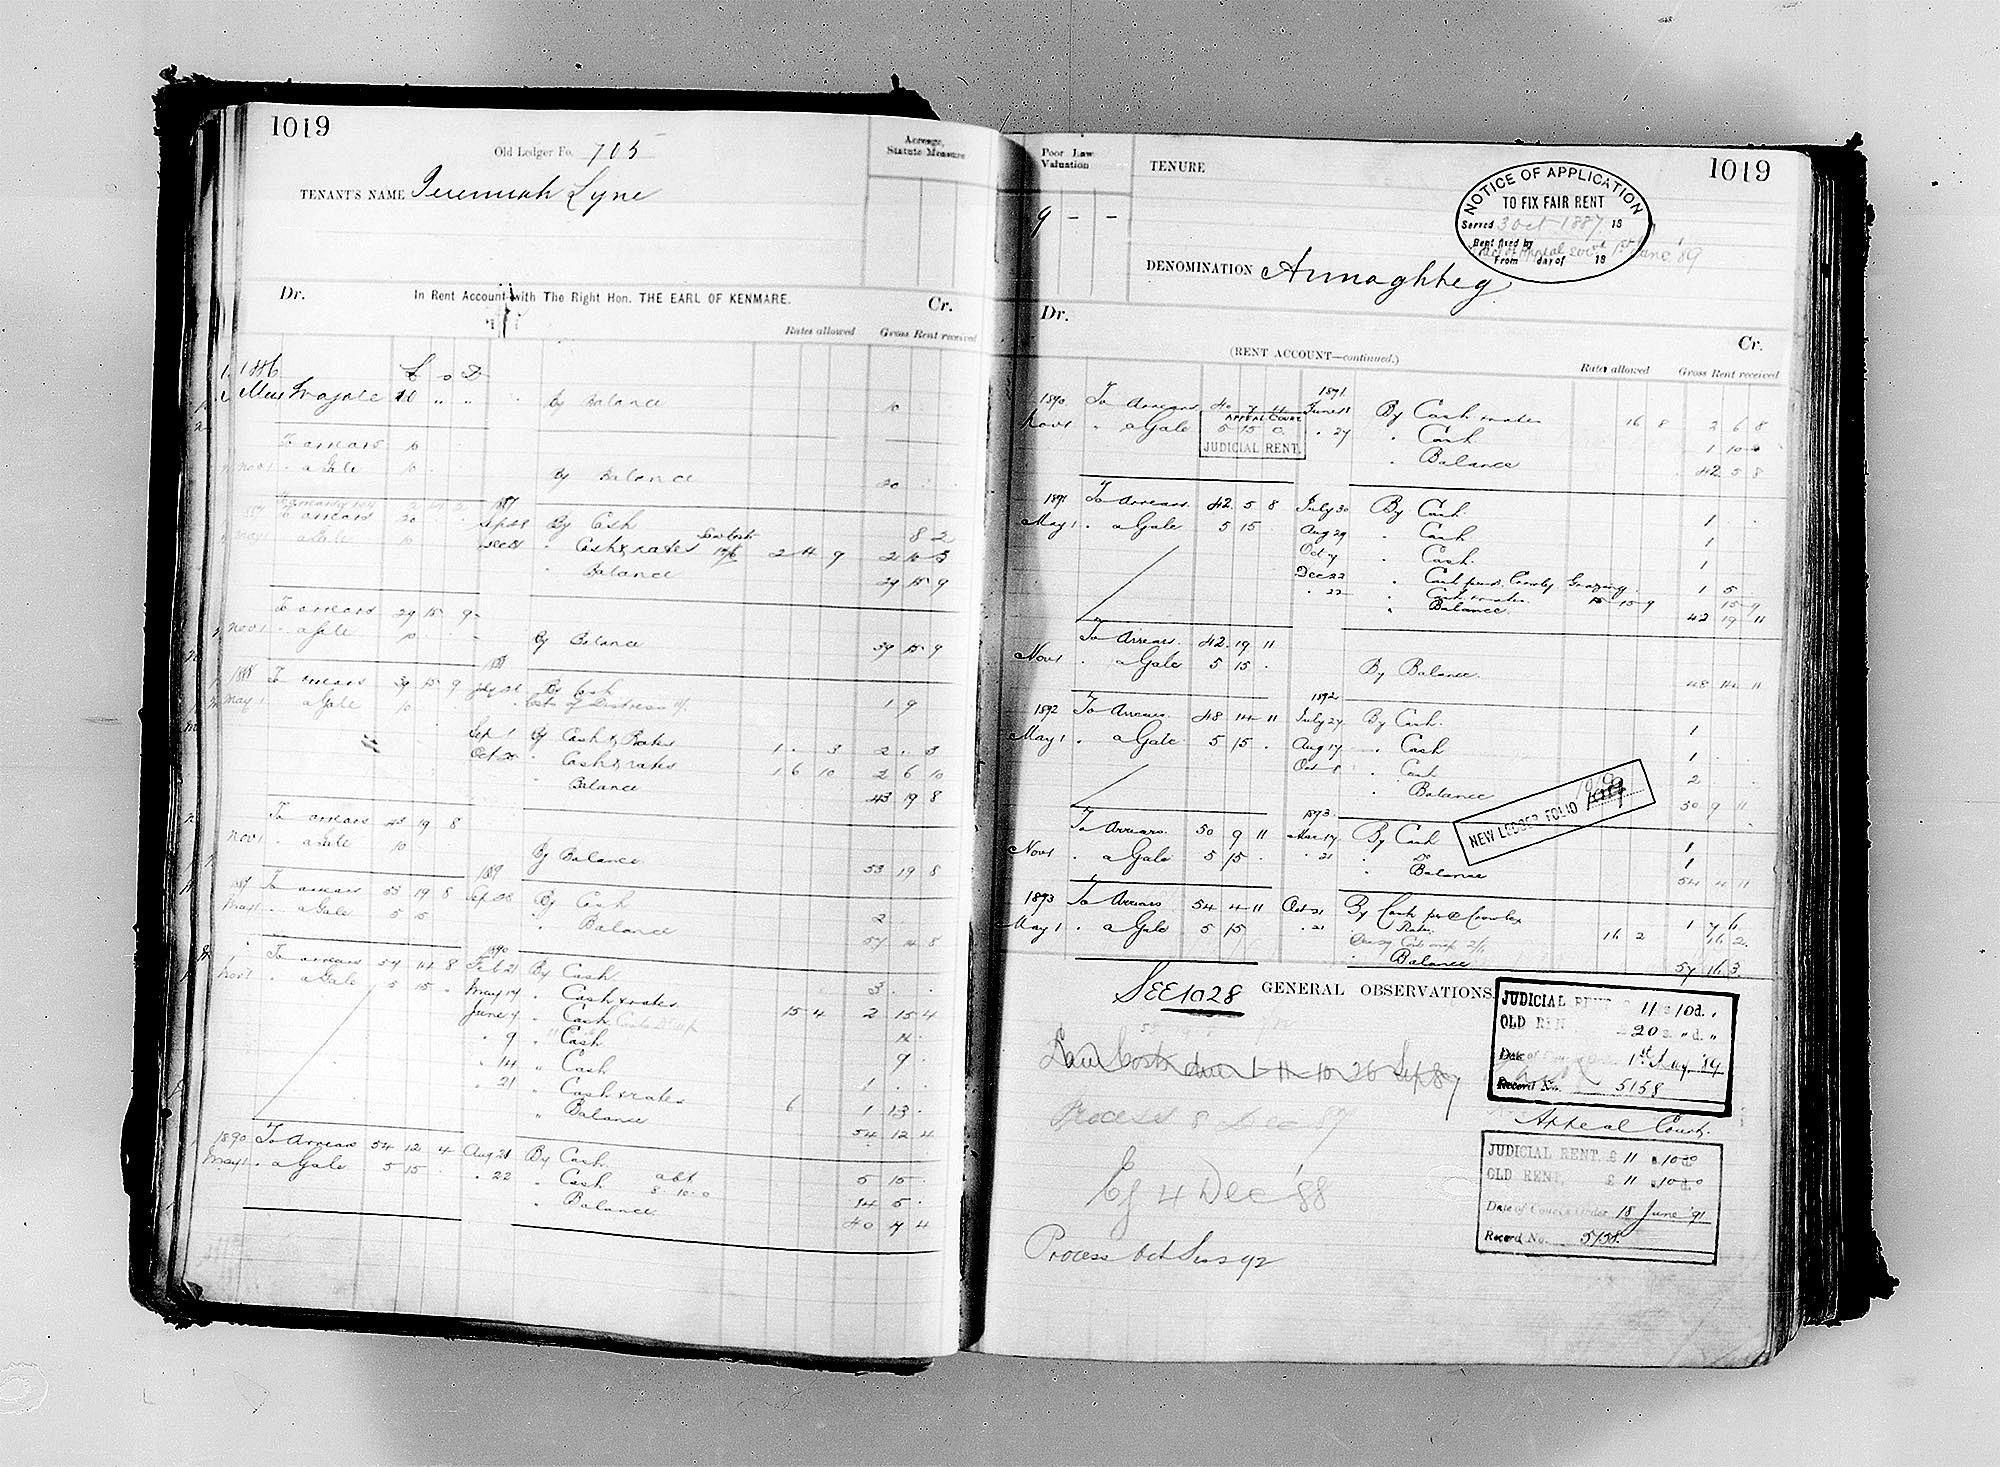 1019
Old Ledger Fo. 705
Acreage, Statute Measure
TENANT'S NAME Jeremiah Lyne
Dr. In Rent Account with The Right Hon. THE EARL OF KENMARE. Cr.
Rates allowed Gross Rent received
1886 £ s D
May 10 " " By Balance 10
To arrears 10
Nov 1 " a Gale 10 By Balance 20
1887
To arrears 20 Sept 28 By Cash 8 2
May 1 " a Gale 10 Dec 21 " Cash & rates 2 4 9 2 10 3
" Balance 29 15 9
To arrears 29 15 9
Nov 1 " a Gale 10 By Balance 39 15 9
1888 1888
To arrears 39 15 9 July 21 By Cash
May 1 " a Gale 10 Costs of Distress 1 9
Sep 1 By Cash & Rates 1 . 3 2 . 3
Oct 20 " Cash & rates 1 6 10 2 6 10
" Balance 43 19 8
To arrears 43 19 8
Nov 1 " a Gale 10 By Balance 53 19 8
1889 1889
To arrears 53 19 8 Sep 28 By Cash 2
May 1 " a Gale 5 15 " Balance 57 14 8
1890
To arrears 57 14 8 Feb 21 By Cash 3 . .
Nov 1 " a Gale 5 15 . May 17 " Cash & rates 15 4 2 15 4
June 7 " Cash 14 .
" 9 " Cash 9 .
" 14 " Cash 1 . .
" 21 " Cash & rates 6 1 13 .
" Balance 54 12 4
1890 To Arrears 54 12 4 Aug 21 By Cash 5 15 .
May 1 " a Gale 5 15 " 22 " Cash abt 8.10.0 14 5 .
" Balance 40 7 4
1019
Poor Law Valuation
TENURE
9 - -
NOTICE OF APPLICATION
TO FIX FAIR RENT
Served 3 Oct 1887 18
Rent fixed by
From day of 18
DENOMINATION Annaghbeg
Dr. Cr.
(RENT ACCOUNT—continued.)
Rates allowed Gross Rent received
1890 To Arrears 40 7 11 1891 June 18 By Cash & rates 16 8 2 6 8
APPEAL COURT
Nov 1 " a Gale 5 15 0 " 27 " Cash 1 10 0
JUDICIAL RENT.
" Balance 42 5 8
1891 To Arrears 42 5 8 July 30 By Cash 1 .
May 1 " a Gale 5 15 . Aug 29 " Cash 1
Oct 7 " Cash. 1
Dec 22 " Cash per Crowley Grazing 1 5
" 22 " Cash & rates. 15 9 15 9
" Balance. 42 19 11
To Arrears. 42 19 11
Nov 1 " a Gale 5 15 . By Balance. 48 14 11
1892
1892 To Arrears 48 14 11 July 27 By Cash. 1
May 1 " a Gale 5 15 . Aug 17 " Cash 1 .
Oct 8 " Cash 2
" Balance 50 9 11
NEW LEDGER FOLIO
1893.
To Arrears. 50 9 11 Mar 17 By Cash 1
Nov 1 " a Gale 5 15 . " 21 " Do 1
" Balance 54 4 11
1893 To Arrears 54 4 11 Oct 21 By Cash per Crowley 1 7 6
May 1 " a Gale 5 15 " 21 Rates 16 2 16 2
" Balance 57 16 3
SEE 1028 GENERAL OBSERVATIONS.
Law Costs due 1 11 10 26 Sep 87
Process 8 Dec 87
Ej 4 Dec '88
Process Oct Sess 92
JUDICIAL RENT £ 11 s 10 d.
OLD RENT £ 20 s. " d. "
Date of 1st May '89
Record No. 5158
Appeal Court.
JUDICIAL RENT, £ 11 s. 10 d. 0
OLD RENT, £ 11 s. 10 d. 0
Date of Courts Order 18 June '91
Record No. 5158